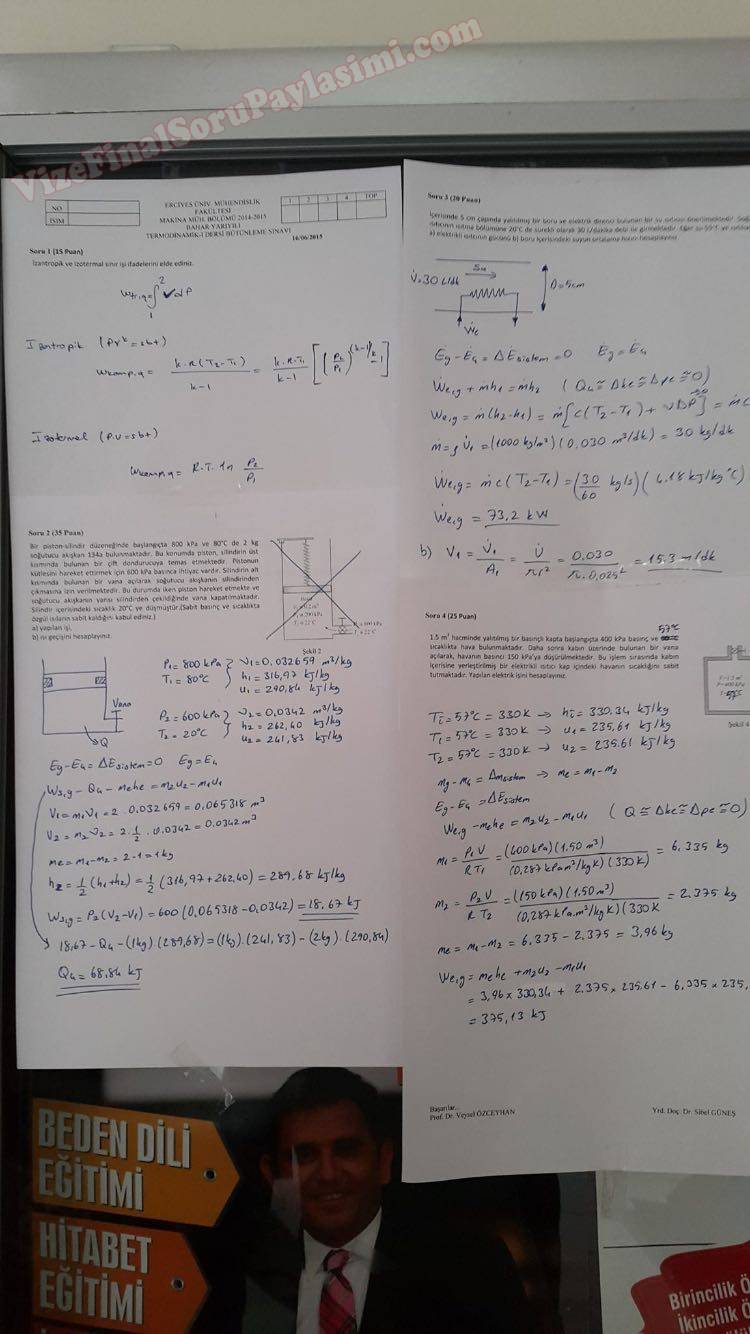 VizeFinalSoruPaylasimi.com
NO
İSİM
ERCİYES ÜNİV. MÜHENDİSLİK
FAKÜLTESİ
MAKİNA MÜH. BÖLÜMÜ 2014-2015
BAHAR YARIYILI
TERMODİNAMİK-I DERSİ BÜTÜNLEME SINAVI
16/06/2015
1 2 3 4 TOP
Soru 1 (15 Puan)
İzantropik ve izotermal sınır işi ifadelerini elde ediniz.
wtr,g = ∫₁² v dP
İzantropik (Pvᵏ = sbt)
wkomp,g = k.R(T₂-T₁)/k-1 = k.R.T₁/k-1 [(P₂/P₁)^(k-1)/k -1]
İzotermal (P.v = sbt)
wkomp,g = R.T. ln P₂/P₁
Soru 2 (35 Puan)
Bir piston-silindir düzeneğinde başlangıçta 800 kPa ve 80°C de 2 kg
soğutucu akışkan 134a bulunmaktadır. Bu konumda piston, silindirin üst
kısmında bulunan bir çift dondurucuya temas etmektedir. Pistonun
kütlesini hareket ettirmek için 600 kPa basınca ihtiyac vardır. Silindirin alt
kısmında bulunan bir vana açılarak soğutucu akışkanın silindirinden
çıkmasına izin verilmektedir. Bu durumda iken piston hareket etmekte ve
soğutucu akışkanın yarısı silindirden çekildiğinde vana kapatılmaktadır.
Silindir içerisindeki sıcaklık 20°C ye düşmüştür.(Sabit basınç ve sıcaklıkta
özgül ısıların sabit kaldığını kabul ediniz.)
a) yapılan işi,
b) ısı geçişini hesaplayınız.
Şekil 2
P₁ = 800 kPa } v₁ = 0,032659 m³/kg
T₁ = 80°C h₁ = 316,97 kJ/kg
u₁ = 290,84 kJ/kg
Vana
P₂ = 600 kPa } v₂ = 0,0342 m³/kg
T₂ = 20°C h₂ = 262,40 kJ/kg
u₂ = 241,83 kJ/kg
Q
Eg-Eç = ΔEsistem = 0 Eg = Eç
Ws,g - Qç - mehe = m₂u₂ - m₁u₁
V₁ = m₁v₁ = 2 . 0,032659 = 0,065318 m³
V₂ = m₂v₂ = 2.1/2 . 0,0342 = 0,0342 m³
me = m₁-m₂ = 2-1 = 1 kg
h₂ = 1/2 (h₁+h₂) = 1/2 (316,97+262,40) = 289,68 kJ/kg
Ws,g = P₂(V₂-V₁) = 600 (0,065318 - 0,0342) = 18,67 kJ
18,67 - Qç - (1kg) (289,68) = (1kg).(241,83) - (2kg).(290,84)
Qç = 68,84 kJ
Soru 3 (20 Puan)
V̇ = 30 L/dk
Su
D = 5cm
Ẇe
Ėg - Ėç = ΔĖsistem = 0 Ėg = Ėç
Ẇe,g + ṁh₁ = ṁh₂ (Qç ≅ Δke ≅ Δpe ≅ 0)
Ẇe,g = ṁ(h₂-h₁) = ṁ[c(T₂-T₁) + vΔP] = ṁc
ṁ = ρ V̇₁ = (1000 kg/m³) (0,030 m³/dk) = 30 kg/dk
Ẇe,g = ṁc(T₂-T₁) = (30/60 kg/s) (4.18 kJ/kg°C)
Ẇe,g = 73,2 kW
b) V₁ = V̇₁/A₁ = V̇/πr² = 0,030/π.0,025² = 15,3 m/dk
Soru 4 (25 Puan)
57°C
1.5 m³ hacminde yalıtılmış bir basınçlı kapta başlangıçta 400 kPa basınç ve
sıcaklıkta hava bulunmaktadır. Daha sonra kabın üzerinde bulunan bir vana
açılarak, havanın basıncı 150 kPa'ya düşürülmektedir. Bu işlem sırasında kabın
içerisine yerleştirilmiş bir elektrikli ısıtıcı kap içindeki havanın sıcaklığını sabit
tutmaktadır. Yapılan elektrik işini hesaplayınız.
Şekil 4
Tᵢ = 57°C = 330K → hᵢ = 330,34 kJ/kg
T₁ = 57°C = 330K → u₁ = 235,61 kJ/kg
T₂ = 57°C = 330K → u₂ = 235.61 kJ/kg
mg - mç = Δmsistem → me = m₁-m₂
Eg - Eç = ΔEsistem
We,g - mehe = m₂u₂ - m₁u₁ (Q ≅ Δke ≅ Δpe ≅ 0)
m₁ = P₁V/RT₁ = (400kPa)(1.50 m³)/(0,287 kPa m³/kgK)(330K) = 6.335 kg
m₂ = P₂V/RT₂ = (150kPa)(1.50 m³)/(0,287 kPa.m³/kgK)(330K = 2.375 kg
me = m₁-m₂ = 6.335 - 2.375 = 3,96 kg
We,g = mehe + m₂u₂ - m₁u₁
= 3,96 x 330,34 + 2.375 x 235.61 - 6,335 x 235,
= 375,13 kJ
Başarılar...
Prof. Dr. Veysel ÖZCEYHAN
Yrd. Doç. Dr. Sibel GÜNEŞ
BEDEN DİLİ
EĞİTİMİ
HİTABET
EĞİTİMİ
Birincilik Ö
İkincilik Ö